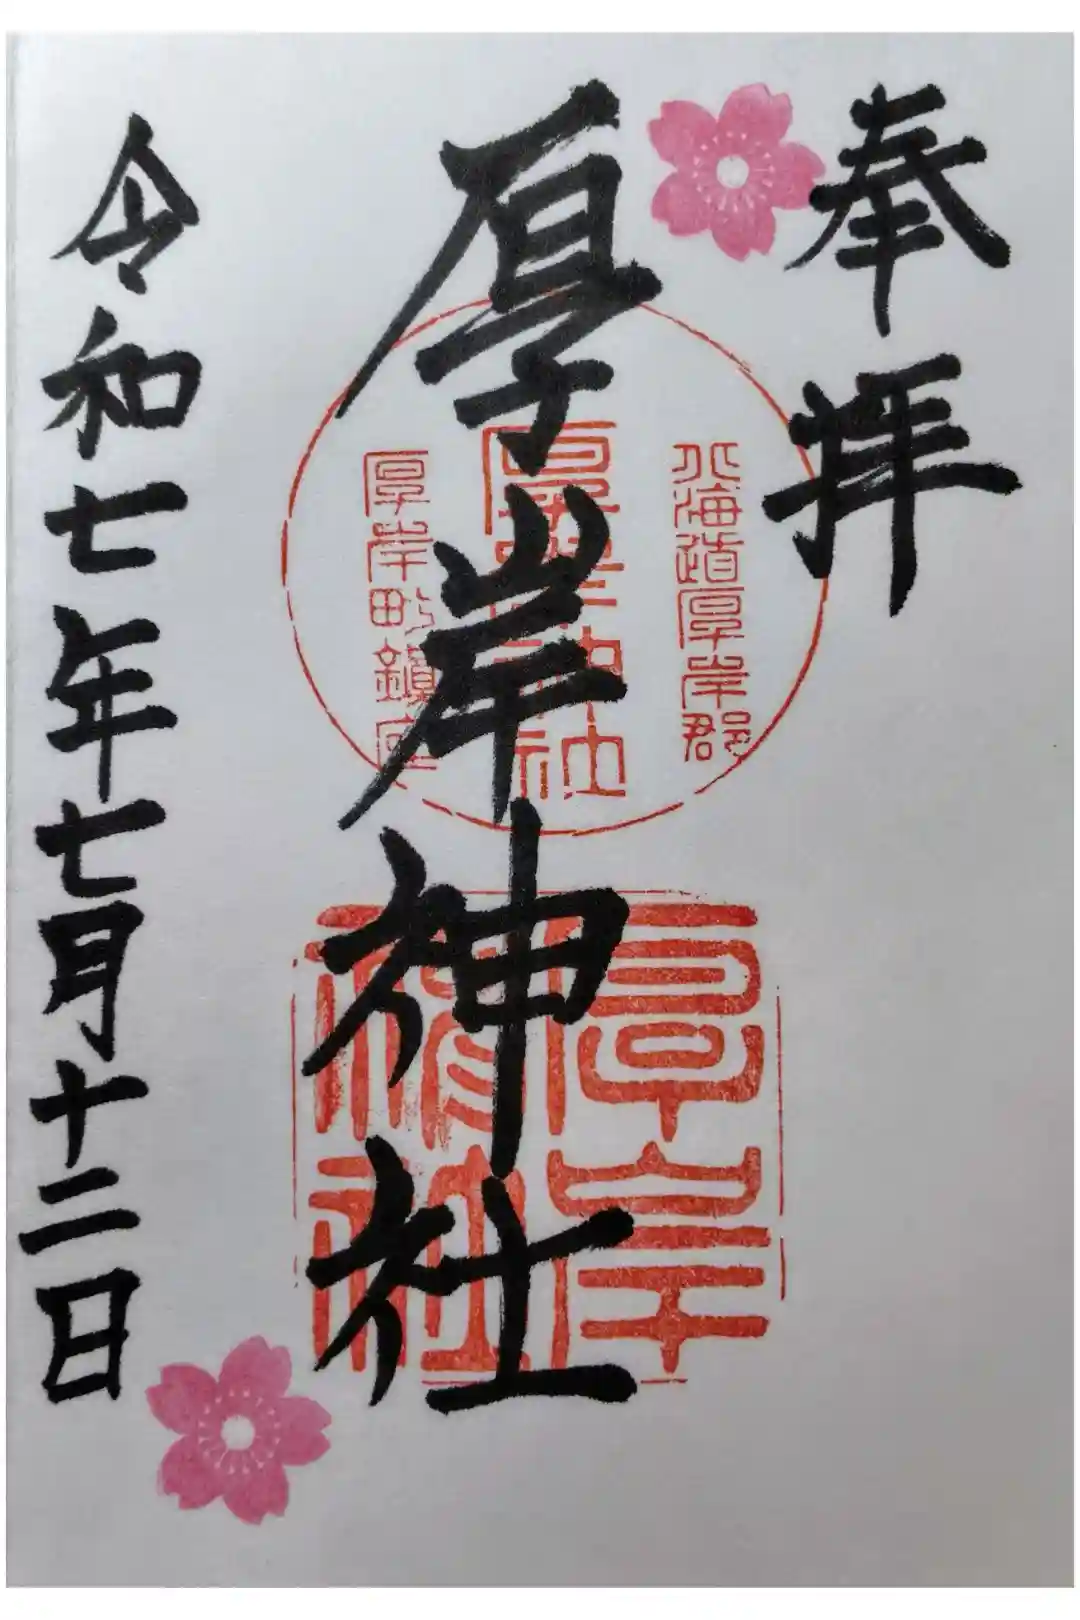 奉拝
厚岸神社
令和七年七月十二日
北海道厚岸郡
厚岸神社
厚岸町鎮座
厚岸
神社